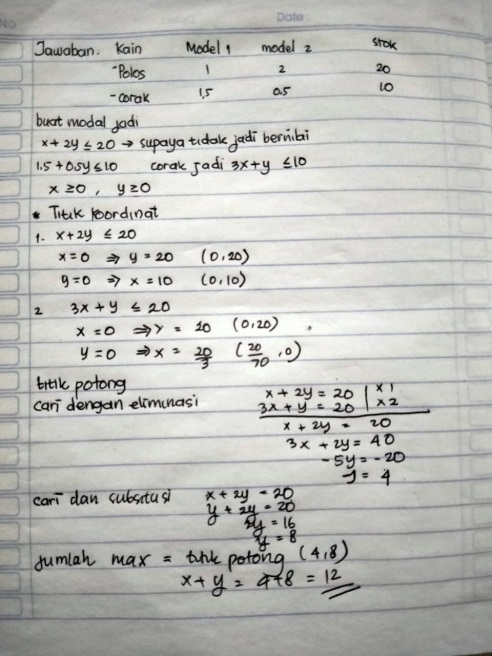 NO
Date:
Jawaban. Kain Model 1 model 2 stok
- Polos 1 2 20
- corak 1,5 0.5 10
buat modal jadi
x + 2y ≤ 20 → supaya tidak jadi bernilai
1.5 + 0.5y ≤ 10 corak jadi 3x+y ≤ 10
x ≥ 0 , y ≥ 0
* Titik koordinat
1. x + 2y ≤ 20
x = 0 ⇒ y = 20 (0,20)
y = 0 ⇒ x = 10 (0,10)
2 3x + y ≤ 20
x = 0 ⇒ y = 20 (0,20)
y = 0 ⇒ x = 20/3 (20/70 ,0)
titik potong
cari dengan eliminasi
x + 2y = 20 | x 1
3x + y = 20 | x 2
x + 2y = 20
3x + 2y = 40
-5y = -20
y = 4
cari dan subsitusi x + 2y = 20
y + 2y = 20
2y = 16
y = 8
Jumlah max = titik potong (4,8)
x + y = 4+8 = 12